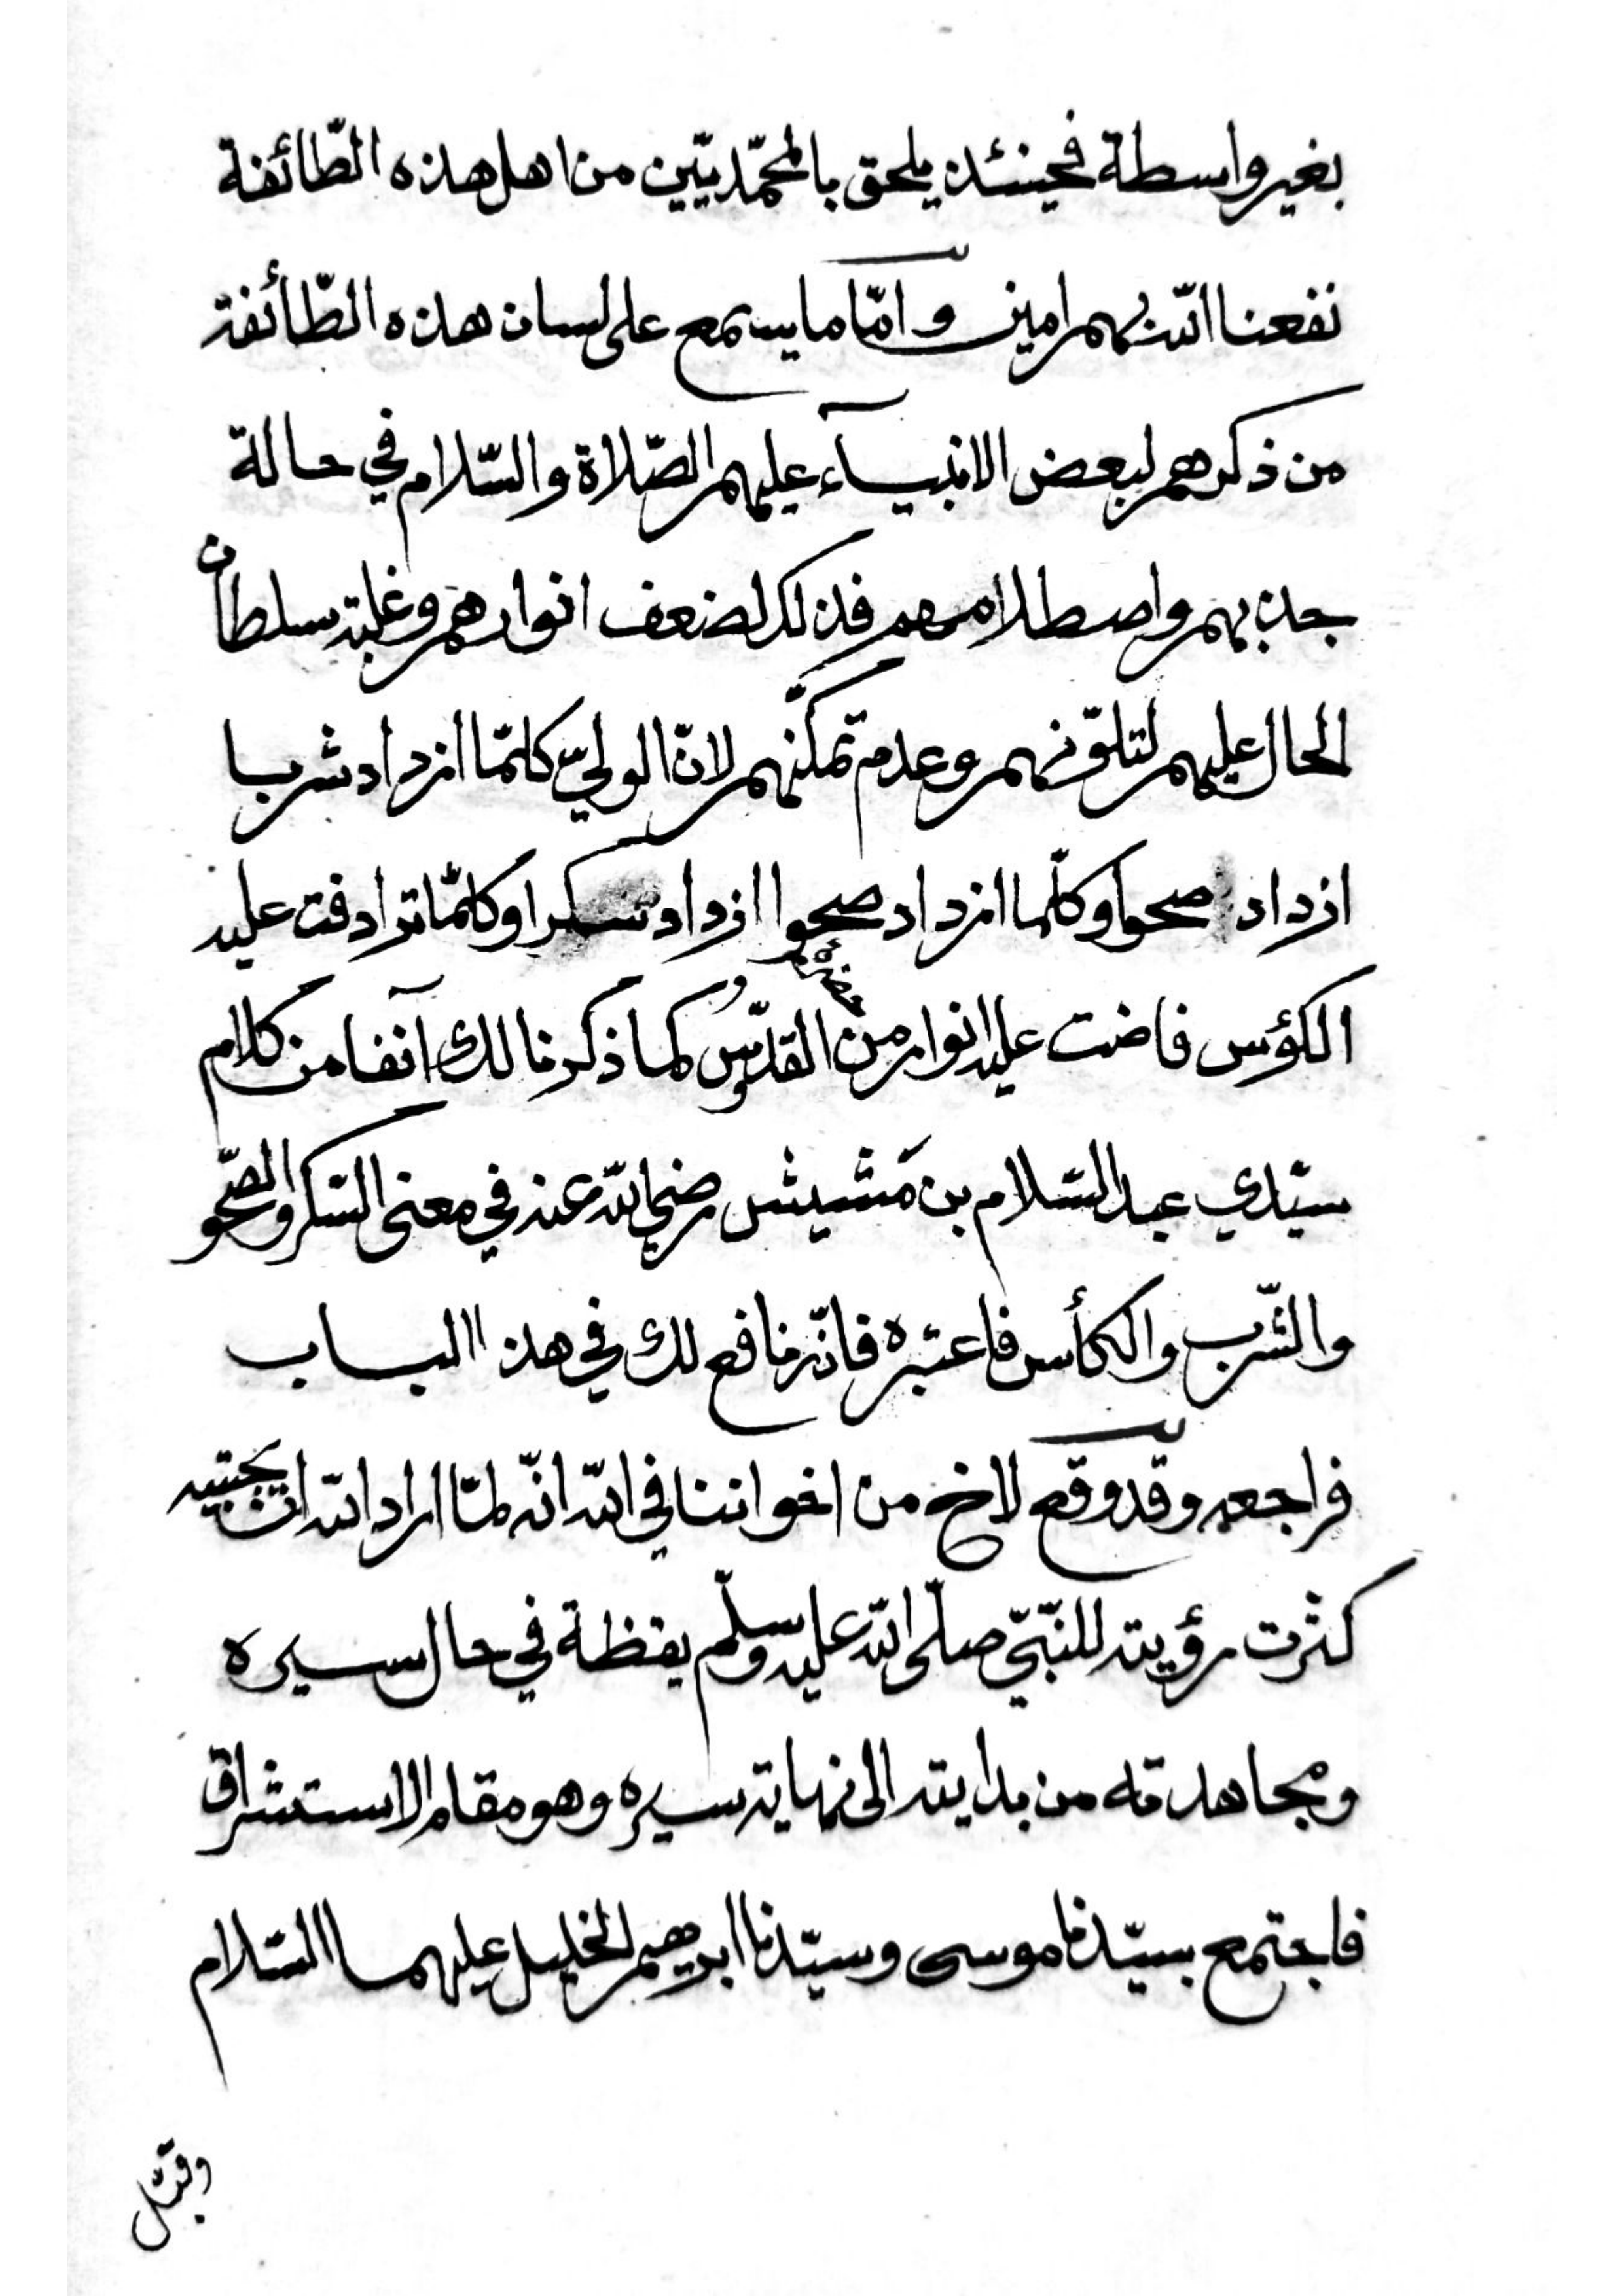 بغير واسطة فحينئذ يلحق بالمحمّديّين من اهل هذه الطّائفة
نفعنا الله بهم امين وامّا ما يسمع على لسان هذه الطّائفة
من ذكرهم لبعض الانبيآء عليهم الصّلاة والسّلام في حالة
جذبهم واصطلامهم فذلك لضعف انوارهم وغلبة سلطان
الحال عليهم لتلوّنهم وعدم تمكّنهم لانّ الوليّ كلمّا ازداد شربا
ازداد صحوا وكلّما ازداد صحوا ازداد سكرا وكلمّا ترادفت عليه
الكؤس فاضت عليه انوار من حضرة القدّوس كما ذكرنا لك آنفا من كلام
سيّدي عبد السّلام بن مَشيش رضي الله عنه في معنى السّكر والصّحو
والشّرب والكأس فاعتبره فانّه نافع لك في هذا الباب
فراجعه وقد وقع لاخ من اخواننا في الله انّه لمّا اراد الله ان يجتبيه
كثرت رؤيته للنّبيّ صلّى الله عليه وسلّم يقظة في حال سيره
ومجاهدته من بدايته الى نهاية سيره وهو مقام الاستشراق
فاجتمع بسيّدنا موسى وسيّدنا ابرهيم الخليل عليهما السّلام
وقبّل